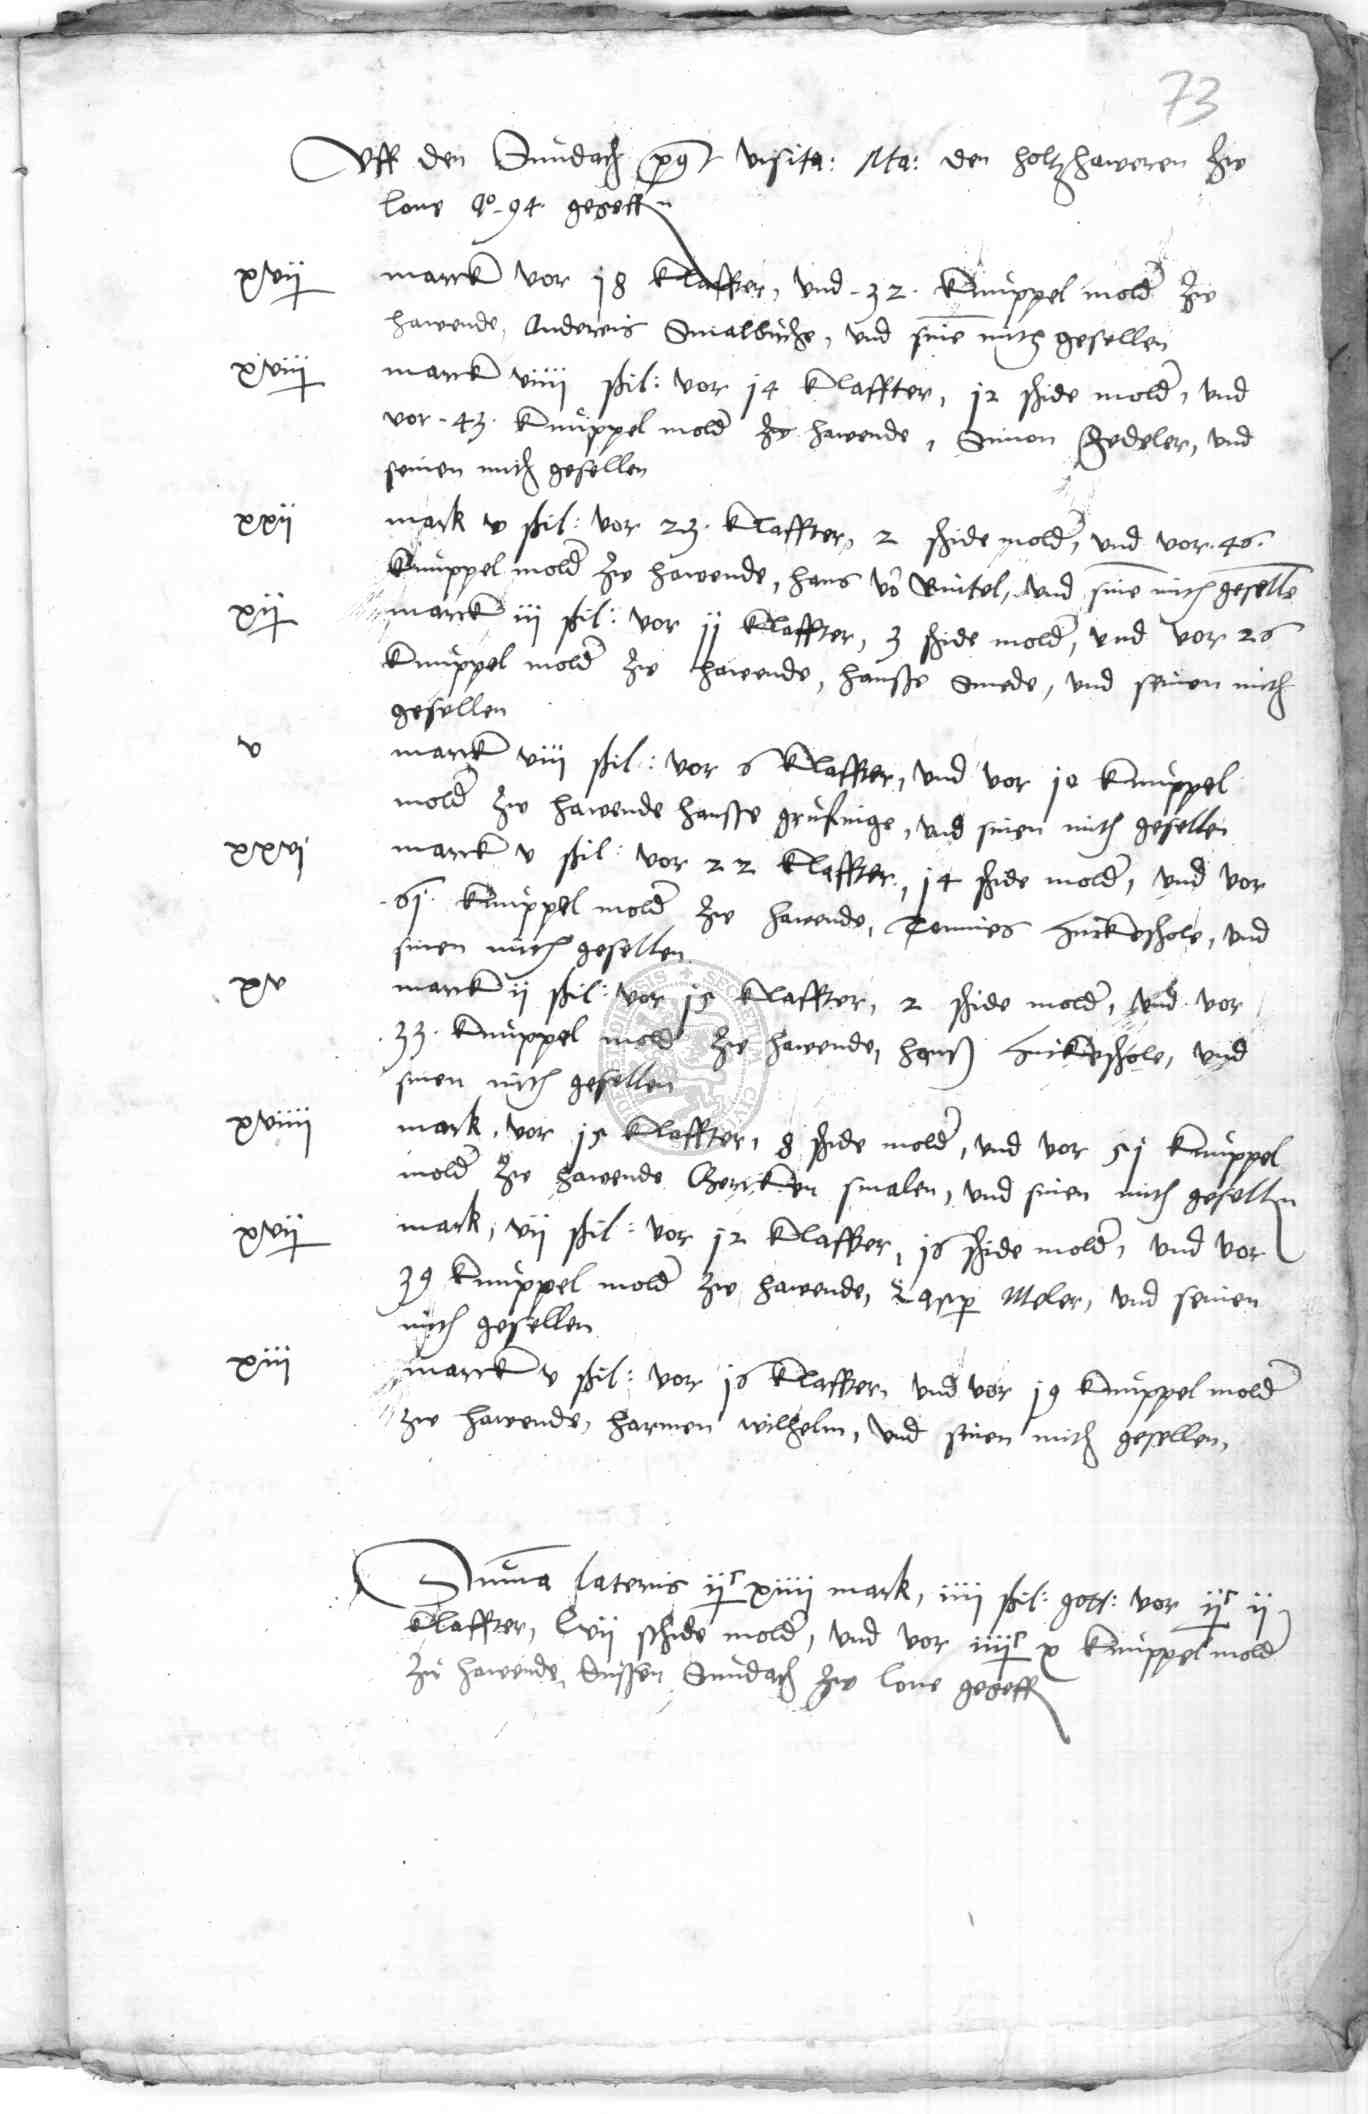 73
Vff den Sundach post visita: Ma: den holtzhaweren zw
lone Ao 94 gegeff
xvii marck vor 18 klaffter, vnd 32 knuppel molder zw
hawende, Anderewis Smalbuche, vnd sine mith gesellen
xviii marck viiii ßil: vor 14 klaffter, 12 schide molder, vnd
vor 43 knuppel molder zw hawende, Simon Zedeler, vnd
seinen mith gesellen
xxii mark v ßil: vor 23 klaffter, 2 schide molder, vnd vor 46
knuppel molder zw hawende, hans vo Rintel, vnd sine mith geselle
xii marck iii ßil: vor 11 klaffter, 3 schide molder, vnd vor 26
knuppel molder zw hawende, hansse Smede, vnd seinen mith
gesellen
v marck viii ßil: vor 6 klaffter, vnd vor 10 knuppel
molder zw hawende hansse, vnd sinen mith gesellen
xxvi marck v ßil: vor 22 klaffter, 14 schide molder, vnd vor
61 knuppel molder zw hawende, Tonnies, vnd
sinen mith gesellen
xv marck ii ßil: vor 15 klaffter, 2 schide molder, vnd vor
33 knuppel molder zw hawende, hanß, vnd
sinen mith gesellen
xviiii mark, vor 15 klaffter, 8 schide molder, vnd vor 51 knuppel
molder zw hawende Gercken smalen, vnd sinen mith gesellen
xvii mark, vii ßil: vor 12 klaffter, 16 schide molder, vnd vor
39 knuppel molder zw hawende, Casp Meler, vnd seinen
mith gesellen
xiii marck v ßil: vor 16 klaffter, vnd vor 19 knuppel molder
zw hawende, harmen wilhelm, vnd sinen mith gesellen,
Summa lateris iic xiiii mark, iiii ßil: gotts: vor iic ii
klaffter, lvii schide molder, vnd vor iiiic x knuppel molder
zw hawende, dussen Sundach zw lone gegeff